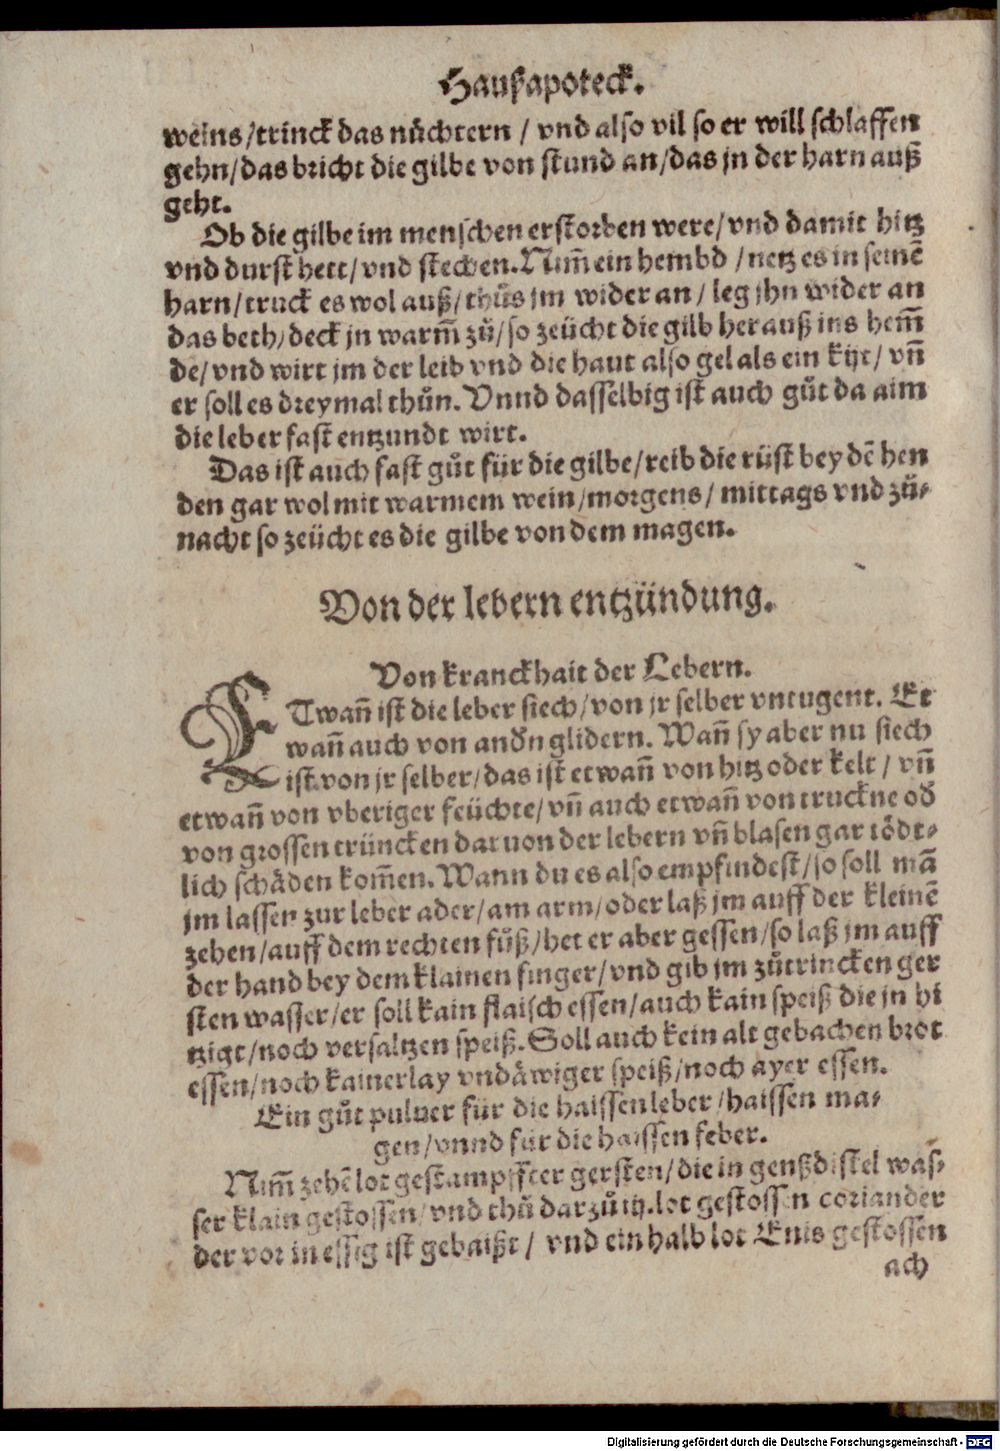 Haußapoteck.
weins/trinck das nüchtern / vnd also vil so er will schlaffen
gehn/das bricht die gilbe von stund an/das jn der harn auß
geht.
Ob die gilbe im menschen erstorben were/vnd damit hitz
vnd durst hett/vnd stechen. Nim̄ ein hembd /netz es in seinē
harn/truck es wol auß/thůs jm wider an/ leg jhn wider an
das beth/deck jn warm̄ zů/so zeücht die gilb herauß ins hem̄
de/vnd wirt jm der leib vnd die haut also gel als ein kijt/ vn̄
er soll es dreymal thůn. Vnnd dasselbig ist auch gůt da aim
die leber fast entzundt wirt.
Das ist auch fast gůt für die gilbe/reib die rüst bey dē hen
den gar wol mit warmem wein/morgens/ mittags vnd zů-
nacht so zeücht es die gilbe von dem magen.
Von der lebern entzündung.
Von kranckhait der Lebern.
ETwan̄ ist die leber siech/von jr selber vntugent. Et
wan̄ auch von andn̄ glidern. Wan̄ sy aber nu siech
ist von jr selber/das ist etwan̄ von hitz oder kelt / vn̄
etwan̄ von vberiger feüchte/vn̄ auch etwan̄ von truckne od
von grossen trüncken daruon der lebern vn̄ blasen gar tödt-
lich schäden kom̄en. Wann du es also empfindest/so soll mā
jm lassen zur leber ader/am arm/oder laß jm auff der kleinē
zehen/auff dem rechten fůß/het er aber gessen/so laß jm auff
der hand bey dem klainen finger/vnd gib jm zůtrincken ger
sten wasser/er soll kain flaisch essen/auch kain speiß die jn hi
tzigt/noch versaltzen speiß. Soll auch kein alt gebachen brot
essen/noch kainerlay vndäwiger speiß/noch ayer essen.
Ein gůt puluer für die haissen leber/haissen ma-
gen/vnnd für die haissen feber.
Nim̄ zehē lot gestampffter gersten/die in genßdistel was-
ser klain gestossen/vnd thů darzů iij.lot gestossen coriander
der vor in essig ist gebaißt / vnd ein halb lot Enis gestossen
ach
Digitalisierung gefördert durch die Deutsche Forschungsgemeinschaft - DFG